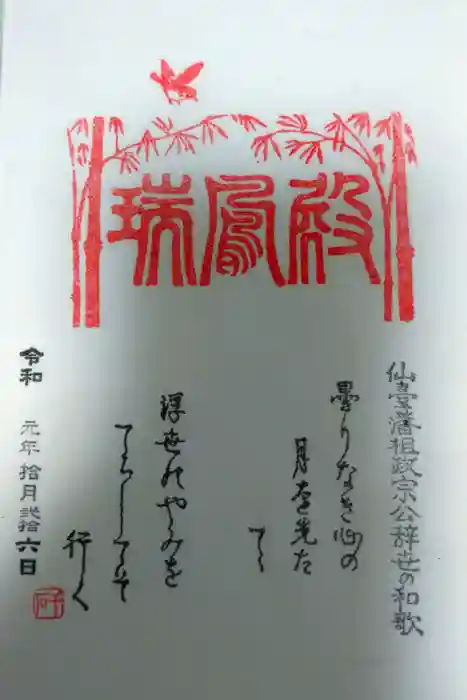 瑞鳳殿
仙臺藩祖政宗公辞世の和歌
曇りなき心の
月を先だ
てゝ
浮世のやみを
てらしてぞ
行く
令和元年拾月弐拾六日